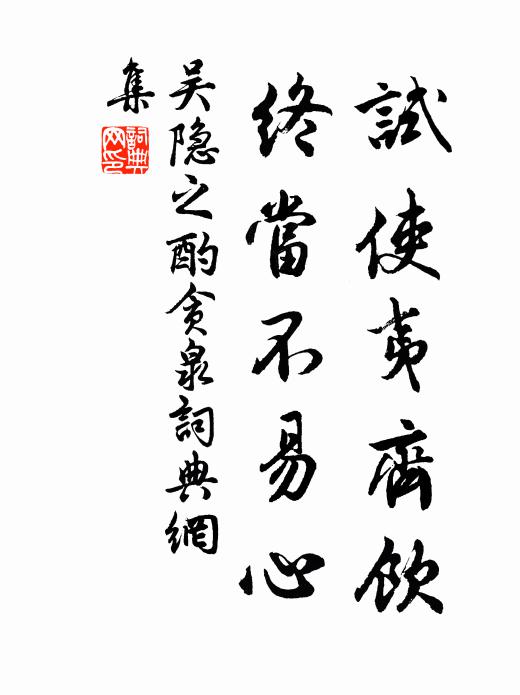 試使夷齊飲
終當不易心
吳隐之酌貪泉詞典網
集
詞典網印